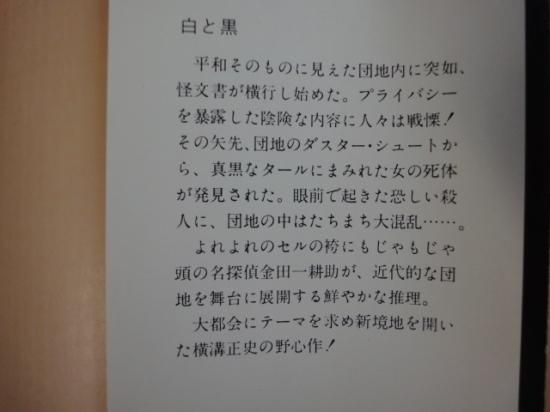 白と黒
平和そのものに見えた団地内に突如、
怪文書が横行し始めた。プライバシー
を暴露した陰険な内容に人々は戦慄!
その矢先、団地のダスター・シュートか
ら、真黒なタールにまみれた女の死体
が発見された。眼前で起きた恐しい殺
人に、団地の中はたちまち大混乱……。
よれよれのセルの袴にもじゃもじゃ
頭の名探偵金田一耕助が、近代的な団
地を舞台に展開する鮮やかな推理。
大都会にテーマを求め新境地を開い
た横溝正史の野心作!